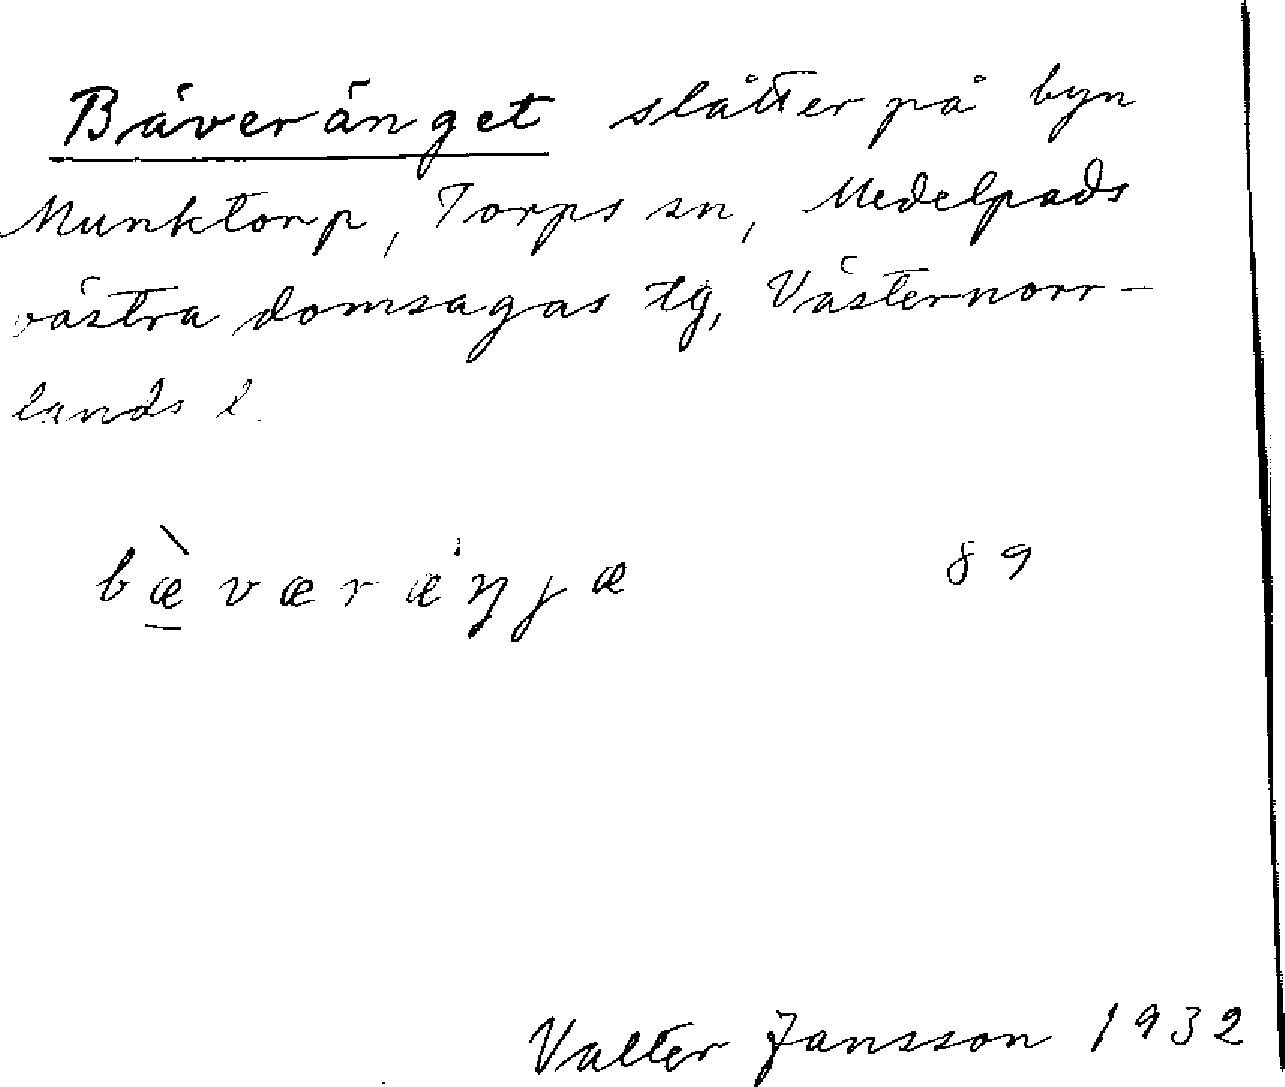 Bäveränget slåtter på byn
Munktorp, Torps sn, Medelpads
västra domsagas tg, Västernorr-
lands l.
bæ̱̀væræ̍ŋjæ 89
Valter Jansson 1932